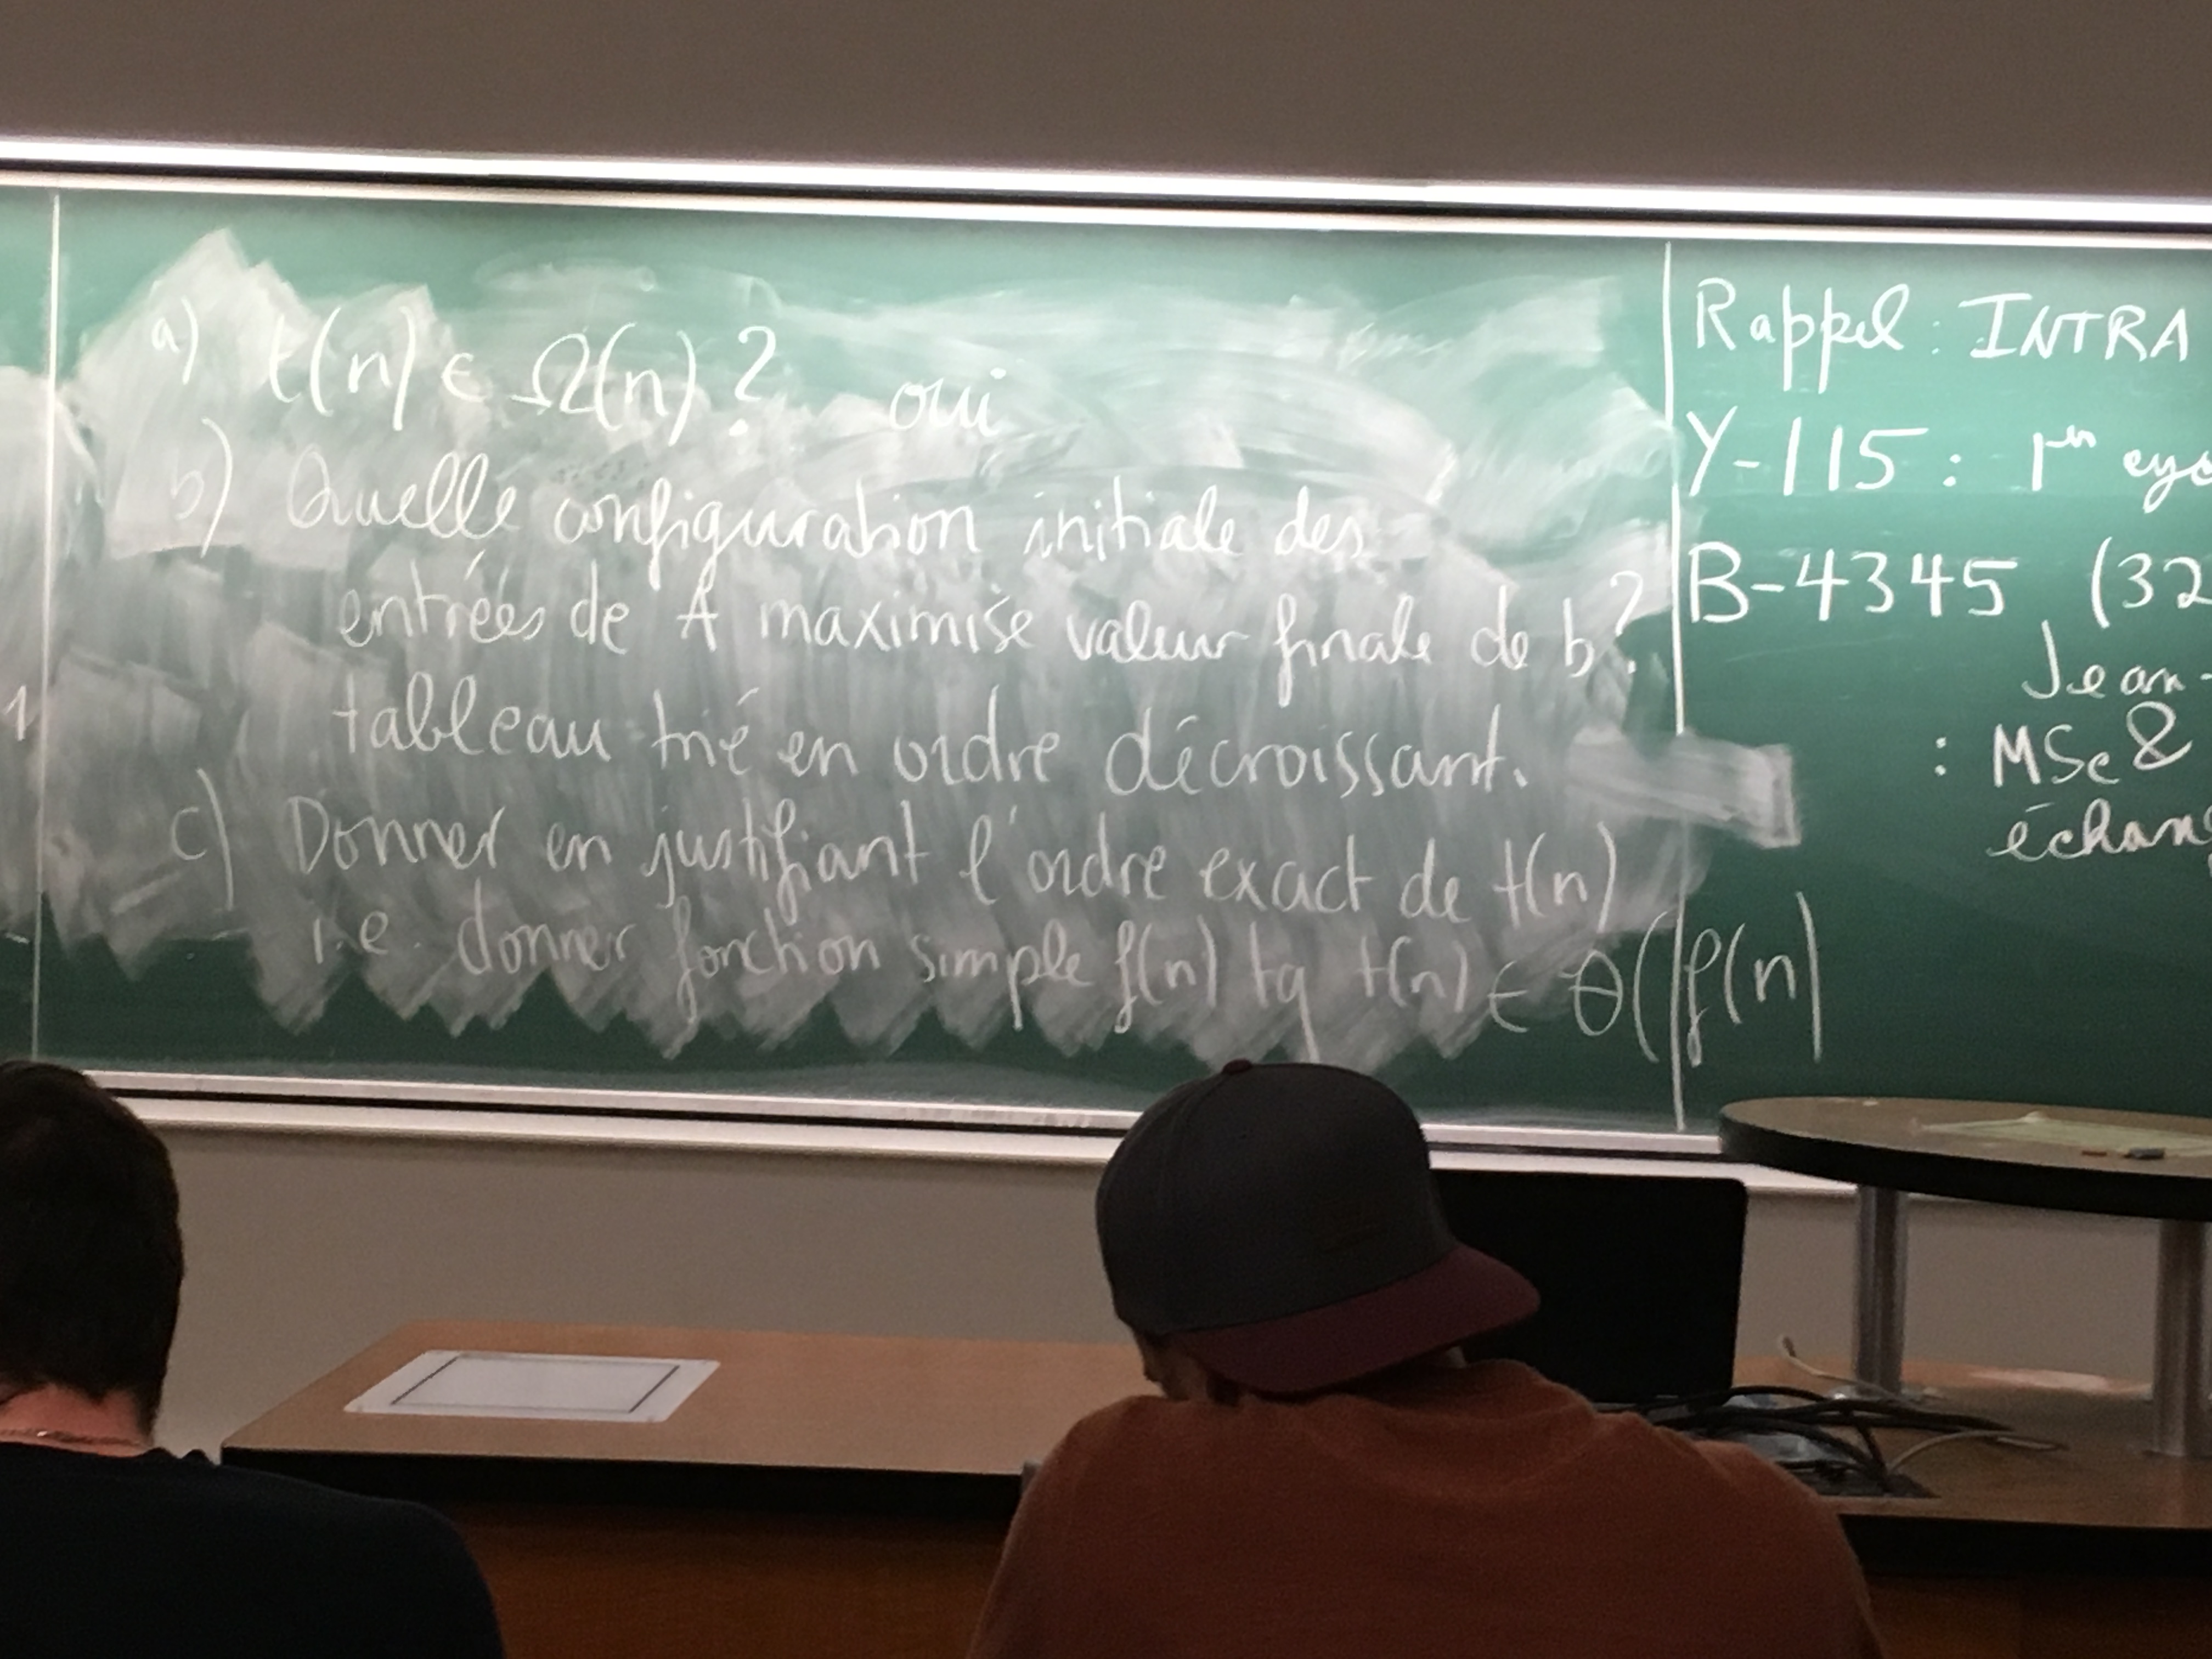 a) t(n) ∈ Ω(n) ? oui
b) Quelle configuration initiale des
entrées de A maximise valeur finale de b ?
tableau trié en ordre décroissant.
c) Donner en justifiant l'ordre exact de t(n)
i.e. donner fonction simple f(n) tq t(n) ∈ Θ(f(n)
Rappel : INTRA
Y-115 : 1er cyc
B-4345 (32
Jean-
: MSc &
échang
1